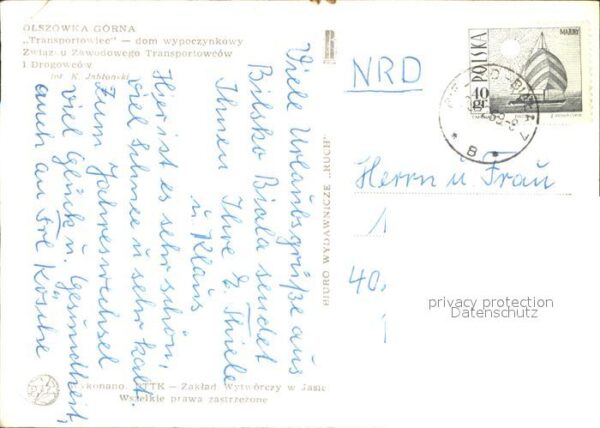 OLSZÓWKA GÓRNA
„Transportowiec" — dom wypoczynkowy
Związku Zawodowego Transportowców
i Drogowców
fot. K. Jabłoński
Viele Urlaubsgrüße aus
Bilsko Biala sendet
Ihnen Ihre E. Thiele
u Klaus
Hier ist es sehr schön,
viel Schnee u sehr kalt.
Zum Jahreswechsel
viel Glück u. Gesundheit,
auch an Frl Kösche
BIURO WYDAWNICZE „RUCH"
Wykonano PTTK — Zakład Wytwórczy w Jaśle
Wszelkie prawa zastrzeżone
NRD
POLSKA
MARINY
40 gr
B
Herrn u Frau
1
40.
privacy protection
Datenschutz